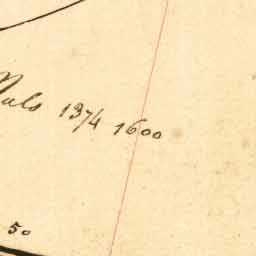 Nals 1374 1600
50